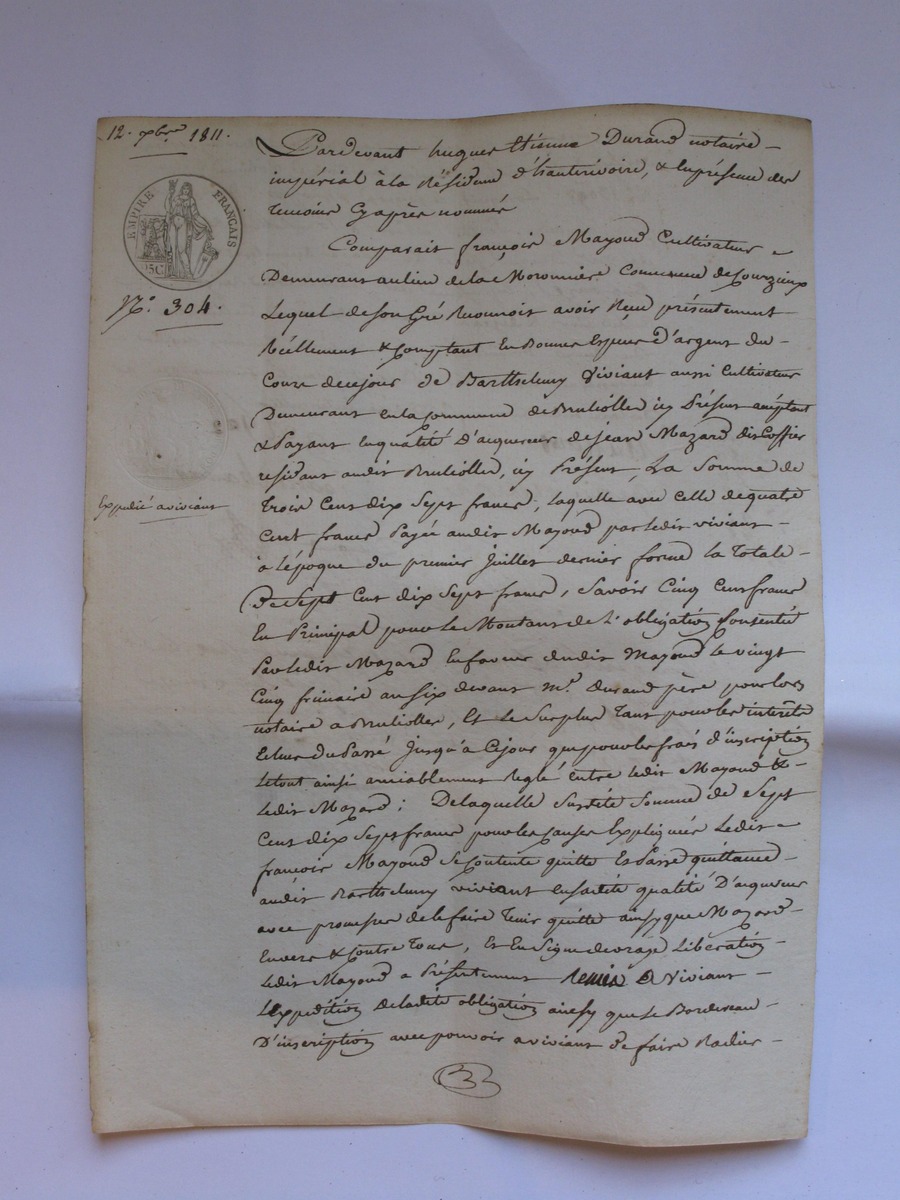 12. xbre 1811.
EMPIRE FRANÇAIS
75C
N.° 304.
Expedié a viviant
Pardevant hugues Etienne Durand notaire
impérial à la Résidence d'hauterivoire, & en présence des
temoins Cyaprès nommés
Comparait françois Mayoud Cultivateur
Demeurant au lieu de la Moronnière Commune de Courzieux
Lequel de son Gré Reconnoit avoir Reçu présentement
Réellement & Comptant En Bonnes Especes d'argent du
Cours de cejour de Barthelemy Viviant aussi Cultivateur
Demeurant en la Commune de Brulioller icy Présent acceptant
& Payant En qualité D'acquereur de jean Mazard dit Coffier
residant audit Brulioller, icy Présent, La Somme de
Trois Cent dix Sept francs, laquelle avec celle de quatre
Cent francs Payée audit Mayoud par ledit viviant
à l'époque du premier juillet dernier forme la Totale
De Sept Cent dix Sept francs, Savoir Cinq Cent francs
En Principal pour le Montant de L'obligation Consentie
Par ledit Mazard En faveur dudit Mayoud le vingt
Cinq frimaire an six devant m.e durand père pour lors
notaire a Brulioller, Et le Surplus Tant pour les interêts
Echus du Passé Jusqu'à Cejour que pour les frais d'inscription
Le tout ainsi amiablement Reglé entre ledit Mayoud &
Ledit Mazard ; De laquelle Susdite Somme de Sept
Cent dix Sept francs pour les Causes Expliquées Ledit
françois Mayoud Se Contente quitte Et Passe quittance
audit Barthelemy viviant En sadite qualité D'acquereur
avec promesse de le faire Tenir quitte ainsy que Mazard
Envers & Contre Tous, Et En Signe de vraye Libération
Ledit Mayoud a Présentement Remis a Viviant
L'expédition de ladite obligation ainsy que le Bordereau
D'inscription avec pouvoir a viviant de faire Radier